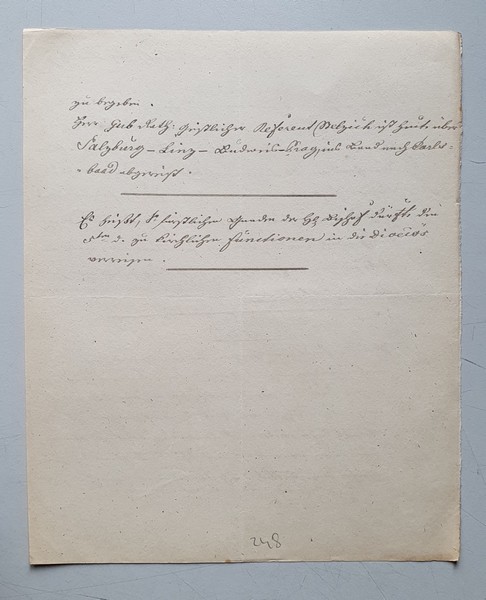 zu begeben.
Herr Gub. Rath: Geistlicher Referent ist heute über
Salzburg – Linz – Budweis – Prag, ins Baad nach Carls-
-baad abgereist.
Es heißt, S. fürstliche Gnaden der H. Bischof dürfte den
5ten d. zu kirchlichen Functionen in die Diöcös
verreisen.
248